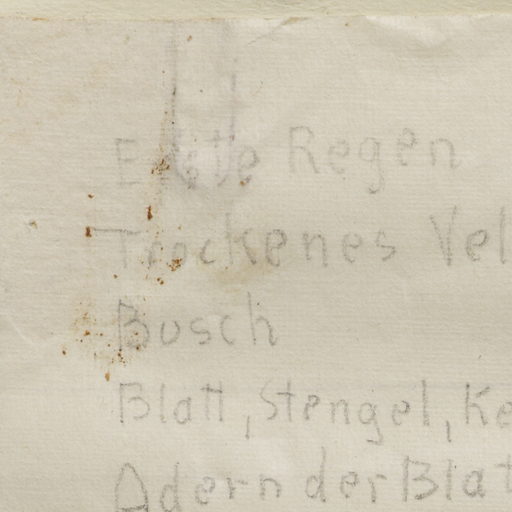 Erste Regen
Trockenes Vel
Busch
Blatt, Stengel, Ke
Adern der Blat